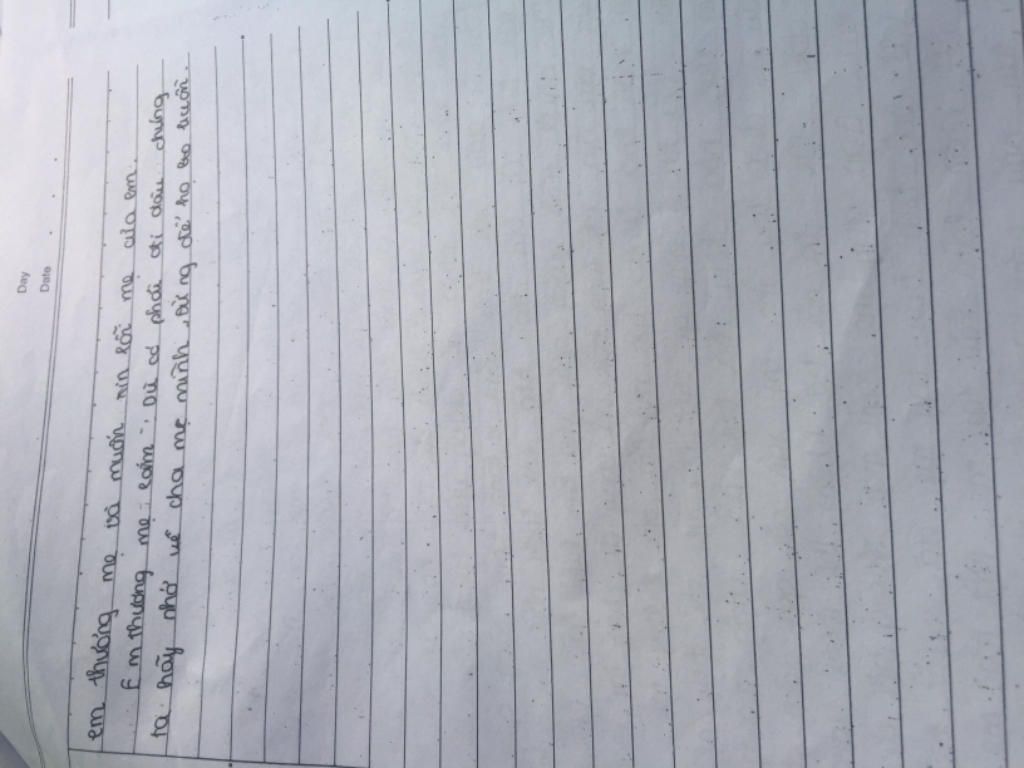 Day
Date
em thương mẹ và muốn xin lỗi mẹ của em.
Em thương mẹ lắm. Dù có phải đi đâu chúng
ta hãy nhớ về cha mẹ mình, đừng để họ